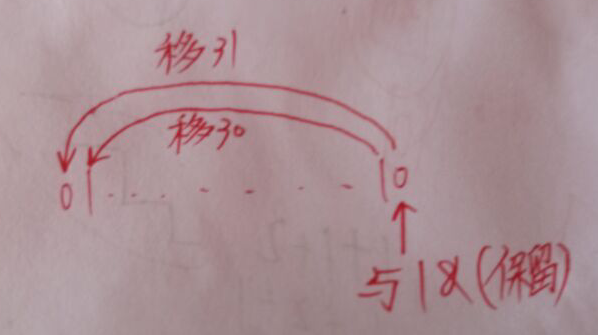 移31
移30
01.......10
与1&(保留)